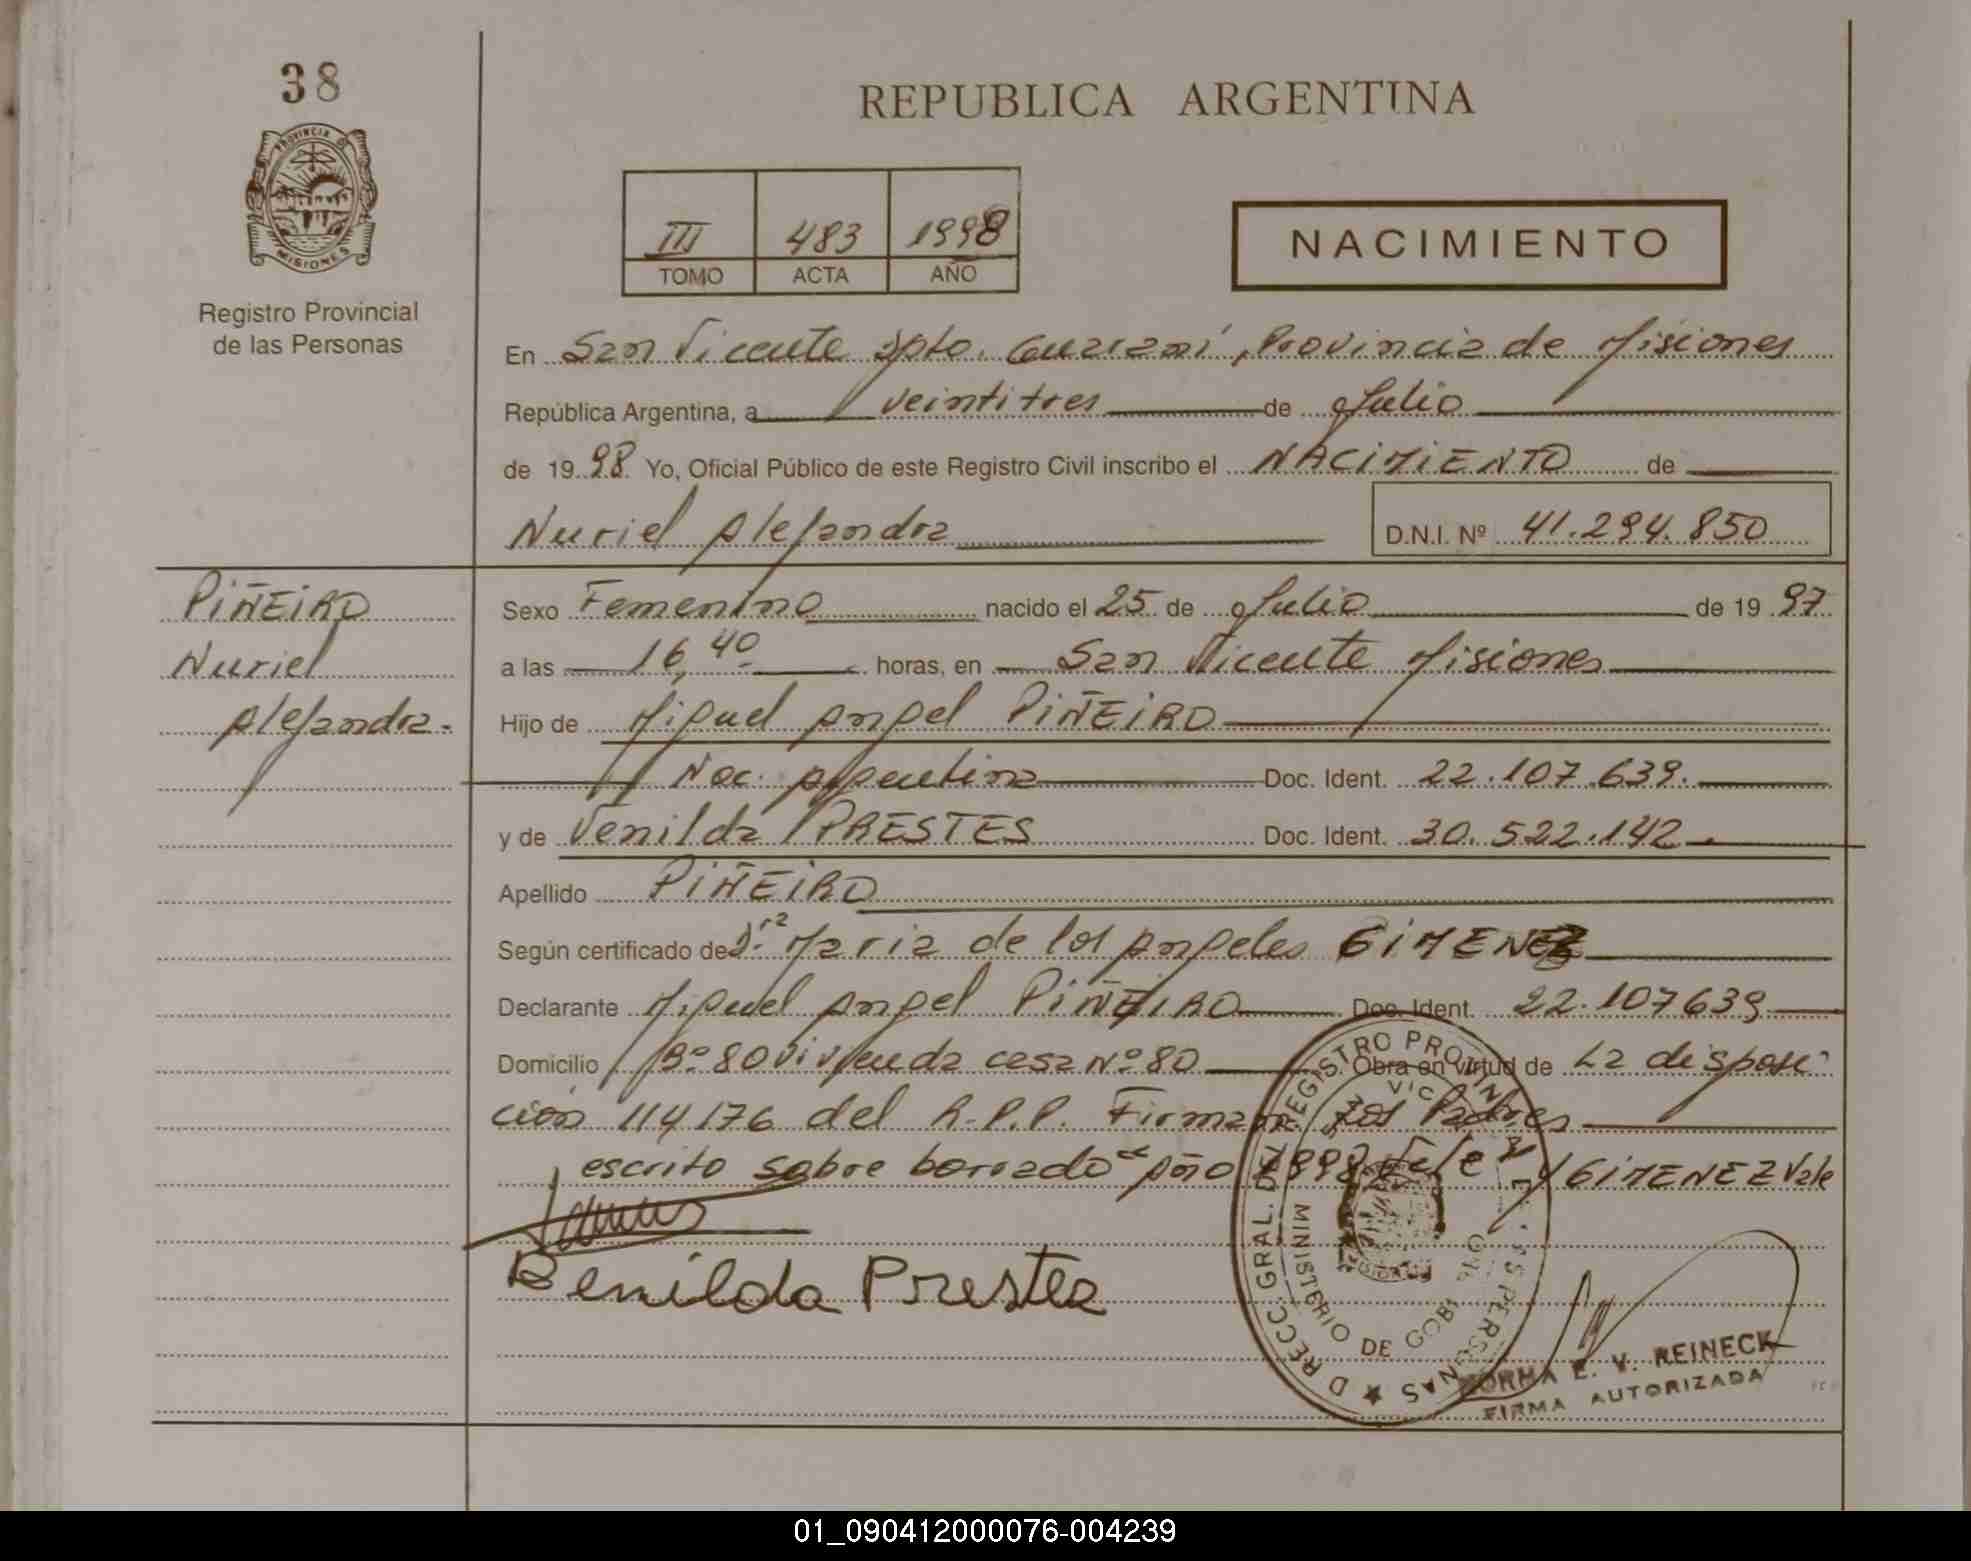 38
PROVINCIA DE
MISIONES
Registro Provincial
de las Personas
REPUBLICA ARGENTINA
III 483 1998
TOMO ACTA AÑO
NACIMIENTO
En San Vicente Dpto. Guaraní, Provincia de Misiones
República Argentina, a veintitres de Julio
de 19 98 Yo, Oficial Público de este Registro Civil inscribo el NACIMIENTO de
Nuriel Alejandra
D.N.I. Nº 41.294.850
PIÑEIRO
Nuriel
Alejandra.-
Sexo Femenino nacido el 25 de Julio de 19 97
a las 16,40 horas, en San Vicente Misiones
Hijo de Miguel Angel PIÑEIRO
Nac. Argentina Doc. Ident. 22.107.639.
y de Venilda PRESTES Doc. Ident. 30.522.142.
Apellido PIÑEIRO
Según certificado de Dra Maria de los Angeles GIMENEZ
Declarante Miguel Angel PIÑEIRO Doc. Ident. 22.107639
Domicilio Bº 80 Vivienda casa Nº 80 Obra en virtud de La disposi
ción 114/76 del R.P.P. Firman Los Padres
escrito sobre borrado Año 1998 y GIMENEZ Vale
Benilda Prestez
DIRECC. GRAL. DEL REGISTRO PROVIN DE LAS PERSONAS
MINISTERIO DE GOBIERNO
NORMA E. V. REINECK
FIRMA AUTORIZADA
01_090412000076-004239